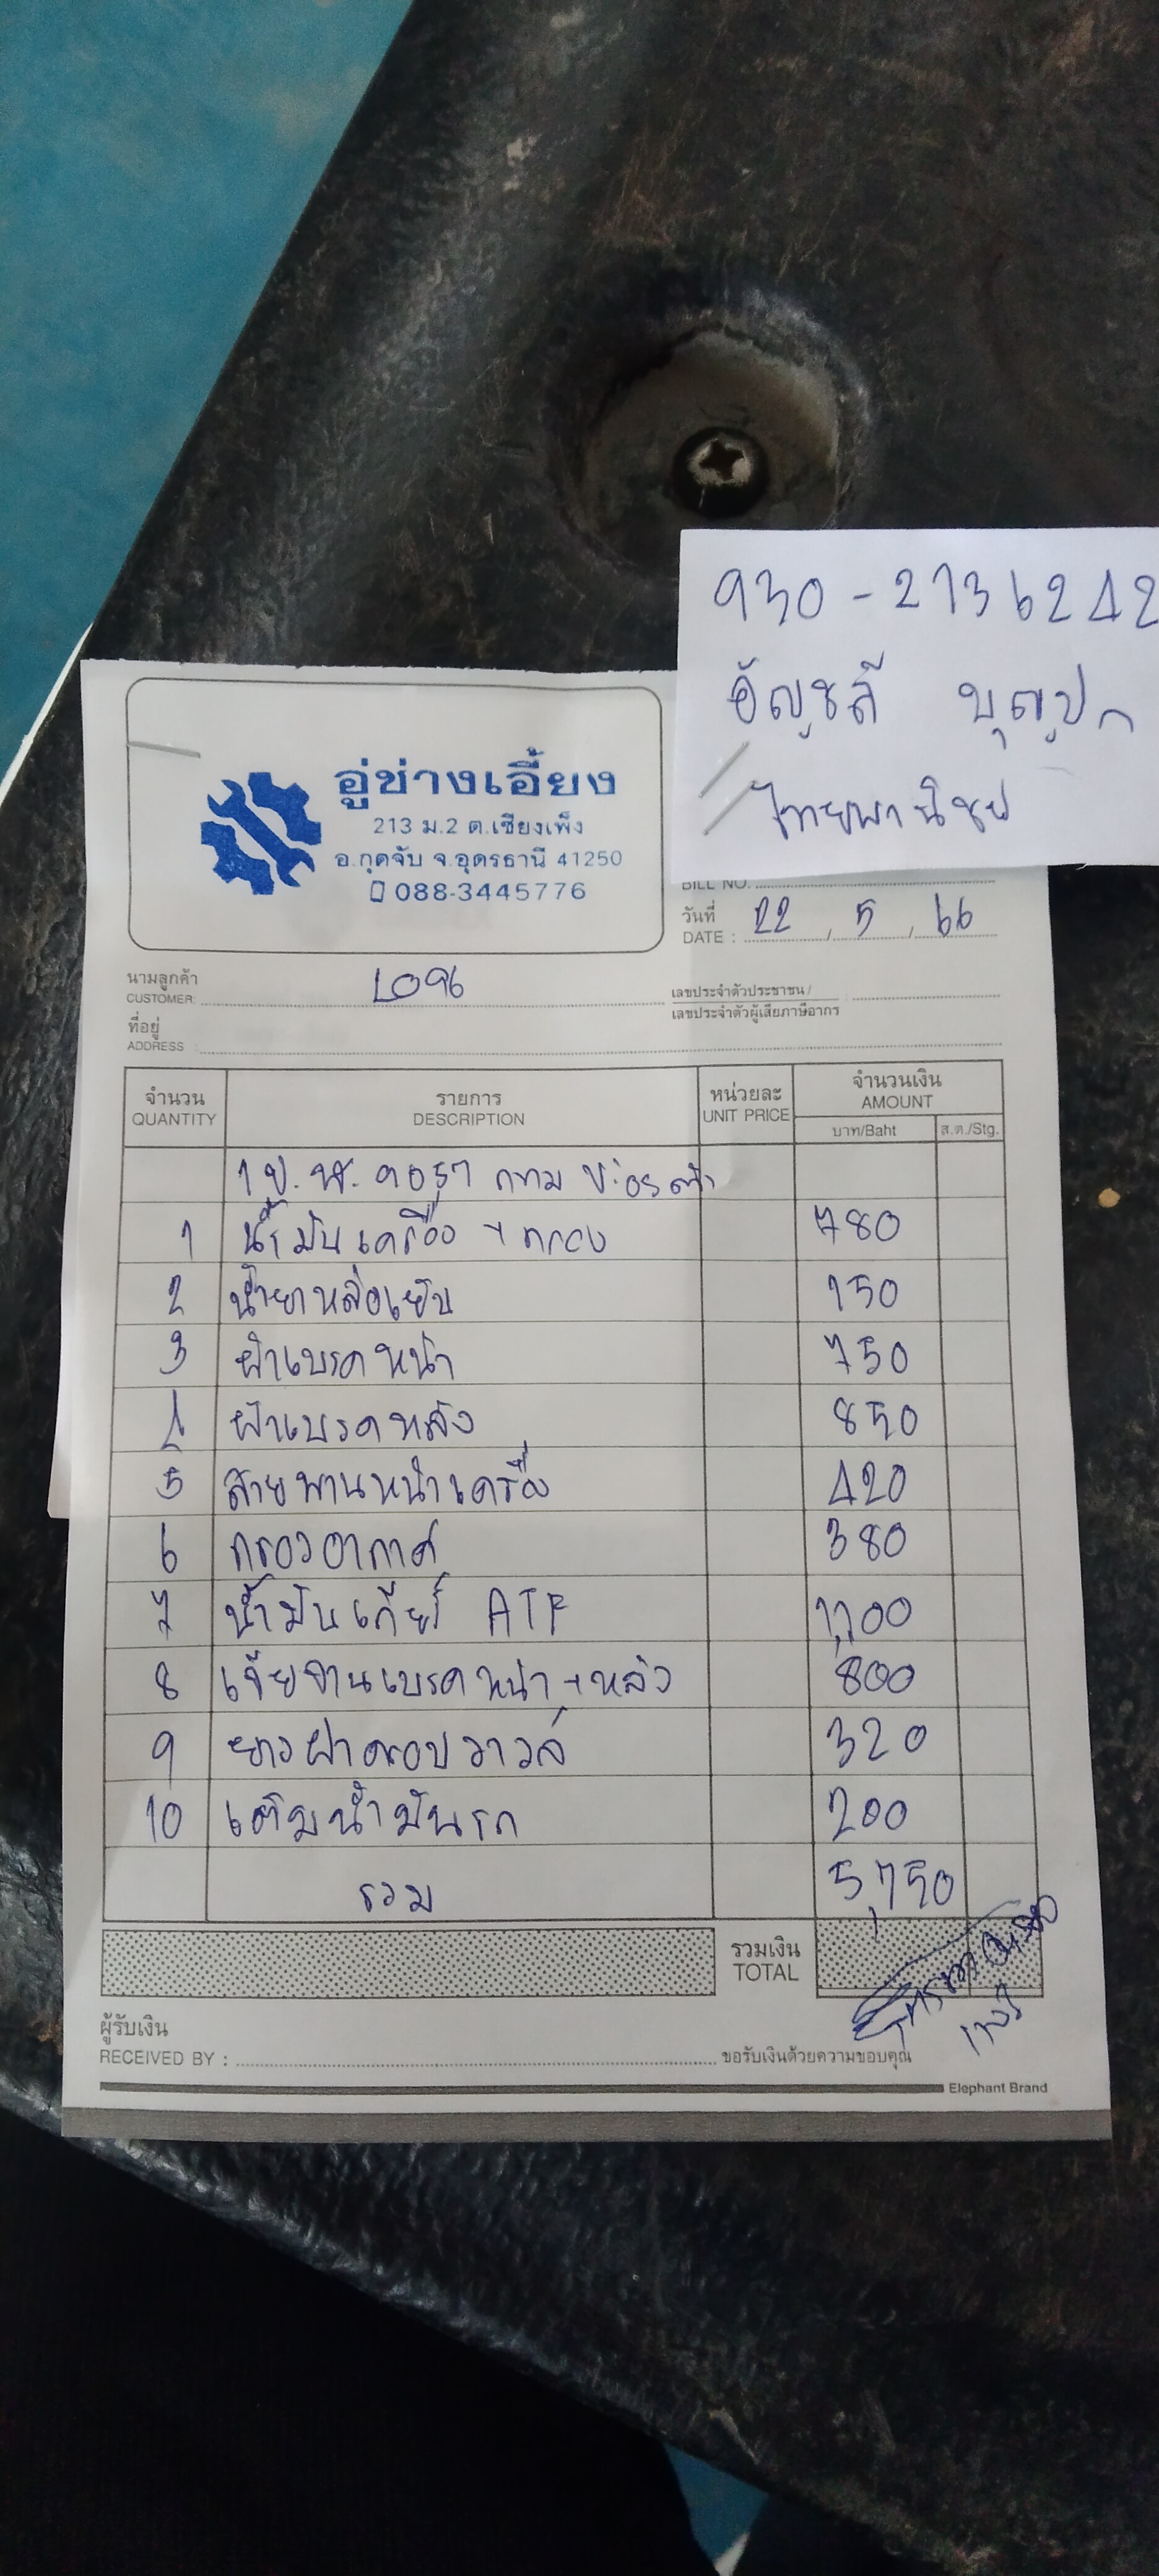 930-2736242
อัญชลี บุญปก
ไทยพานิชย์
อู่ช่างเอี้ยง
213 ม.2 ต.เชียงเพ็ง
อ.กุดจับ จ.อุดรธานี 41250
088-3445776
BILL NO.
วันที่
DATE : 22 , 5 , 66
นามลูกค้า
CUSTOMER LO96
เลขประจำตัวประชาชน /
เลขประจำตัวผู้เสียภาษีอากร
ที่อยู่
ADDRESS
จำนวน รายการ หน่วยละ จำนวนเงิน
QUANTITY DESCRIPTION UNIT PRICE AMOUNT
บาท/Baht ส.ต./Stg.
กทม
1 น้ำมันเครื่อง + กรอง 780
2 น้ำยาหล่อเย็น 150
3 ผ้าเบรคหน้า 750
4 ผ้าเบรคหลัง 850
5 สายพานหน้าเครื่อง 420
6 กรองอากาศ 380
7 น้ำมันเกียร์ ATF 1,100
8 เจียจานเบรคหน้า + หลัง 800
9 ยางฝาครอบวาวล์ 320
10 เติมน้ำมันรถ 200
รวม 5,750
รวมเงิน
TOTAL
ผู้รับเงิน
RECEIVED BY : ขอรับเงินด้วยความขอบคุณ
Elephant Brand